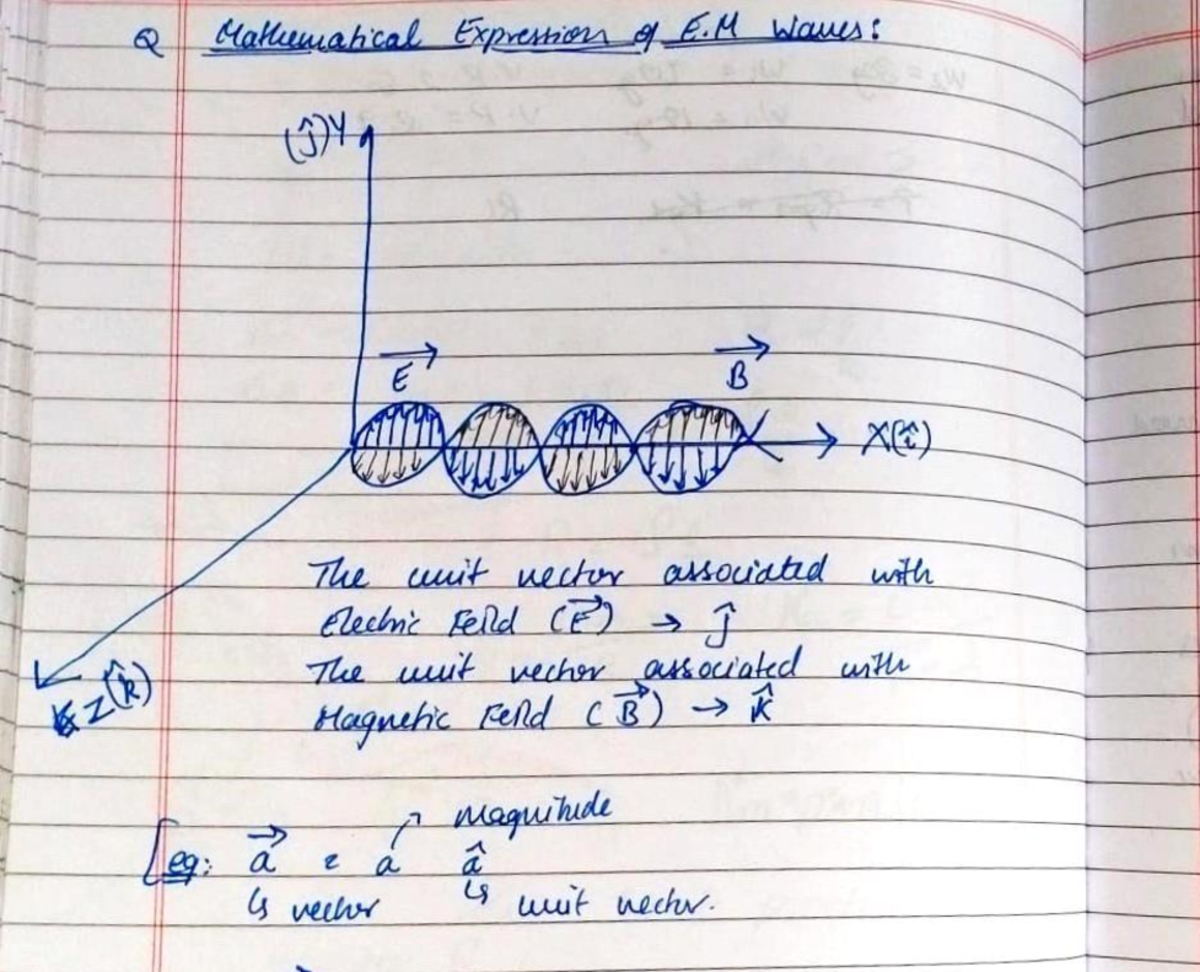 Q Mathematical Expression of E.M Waves:
(ĵ) Y
E→ B→
X(î)
Z(k̂)
The unit vector associated with
Electric Feild (E→) → ĵ
The unit vector associated with
Magnetic Feild (B→) → K̂
magnitude
[eg: a→ = a â
↳ vector ↳ unit vector.